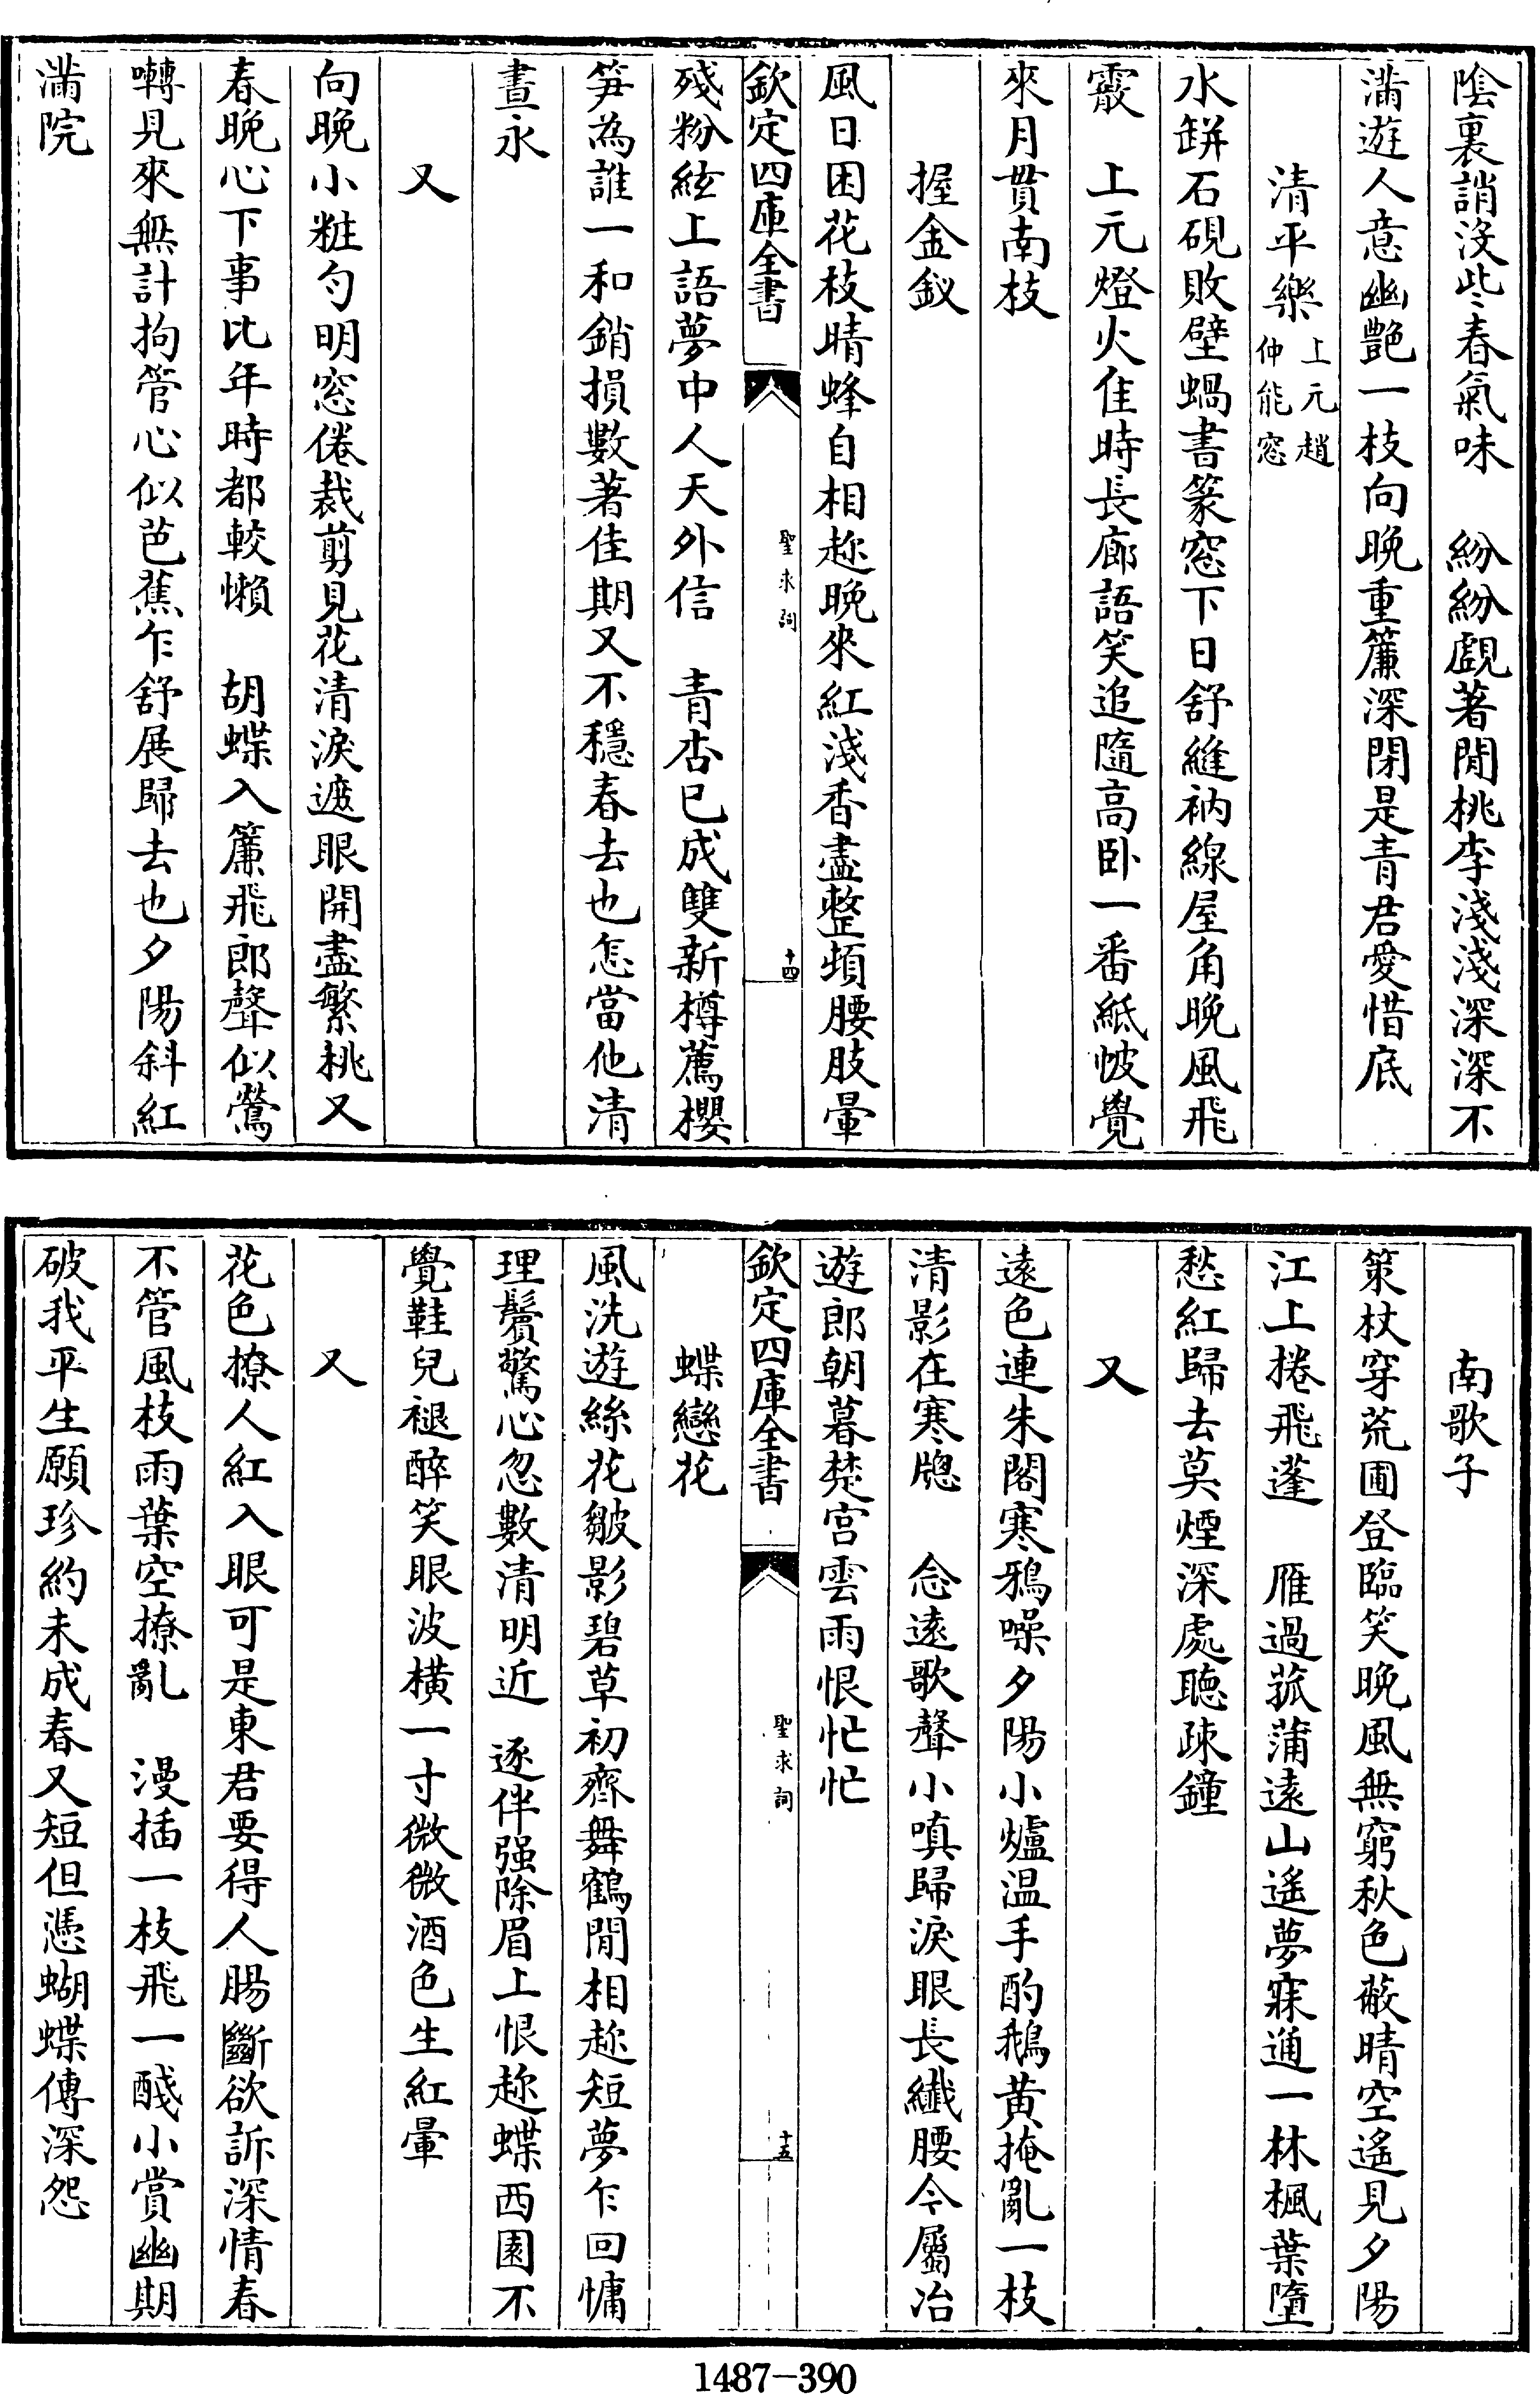 陰裏誚沒些春氣味　紛紛覷著閒桃李淺淺深深不
滿遊人意幽艷一枝向晚重簾深閉是青君愛惜底
清平樂上元趙仲能窓
水缾石硯敗壁蝸書篆窓下日舒縫衲線屋角晚風飛
霰　上元燈火佳時長廊語笑追隨高卧一番紙帔覺
來月貫南枝
握金釵
風日困花枝晴蜂自相趂晚來紅淺香盡整頓腰肢暈
欽定四庫全書
聖求詞
十四
殘粉絃上語夢中人天外信　青杏已成雙新樽薦櫻
笋為誰一和銷損數著佳期又不穩春去也怎當他清
晝永
又
向晚小粧勻明窓倦裁剪見花清淚遮眼開盡繁桃又
春晚心下事比年時都較懶　胡蝶入簾飛郎聲似鶯
囀見來無計拘管心似芭蕉乍舒展歸去也夕陽斜紅
滿院
南歌子
策杖穿荒圃登臨笑晚風無窮秋色蔽晴空遙見夕陽
江上捲飛蓬　雁過菰蒲遠山遙夢寐通一林楓葉墮
愁紅歸去莫煙深處聽疎鐘
又
遠色連朱閣寒鴉噪夕陽小爐温手酌鵝黄掩亂一枝
清影在寒牕　念遠歌聲小嗔歸淚眼長纖腰今屬冶
遊郎朝暮楚宮雲雨恨忙忙
欽定四庫全書
聖求詞
十五
蝶戀花
風洗遊絲花皺影碧草初齊舞鶴閒相趂短夢乍回慵
理鬢驚心忽數清明近　逐伴强除眉上恨趂蝶西園不
覺鞋兒褪醉笑眼波橫一寸微微酒色生紅暈
又
花色撩人紅入眼可是東君要得人腸斷欲訴深情春
不管風枝雨葉空撩亂　漫插一枝飛一醆小賞幽期
破我平生願珍約未成春又短但憑蝴蝶傳深怨
1487-390